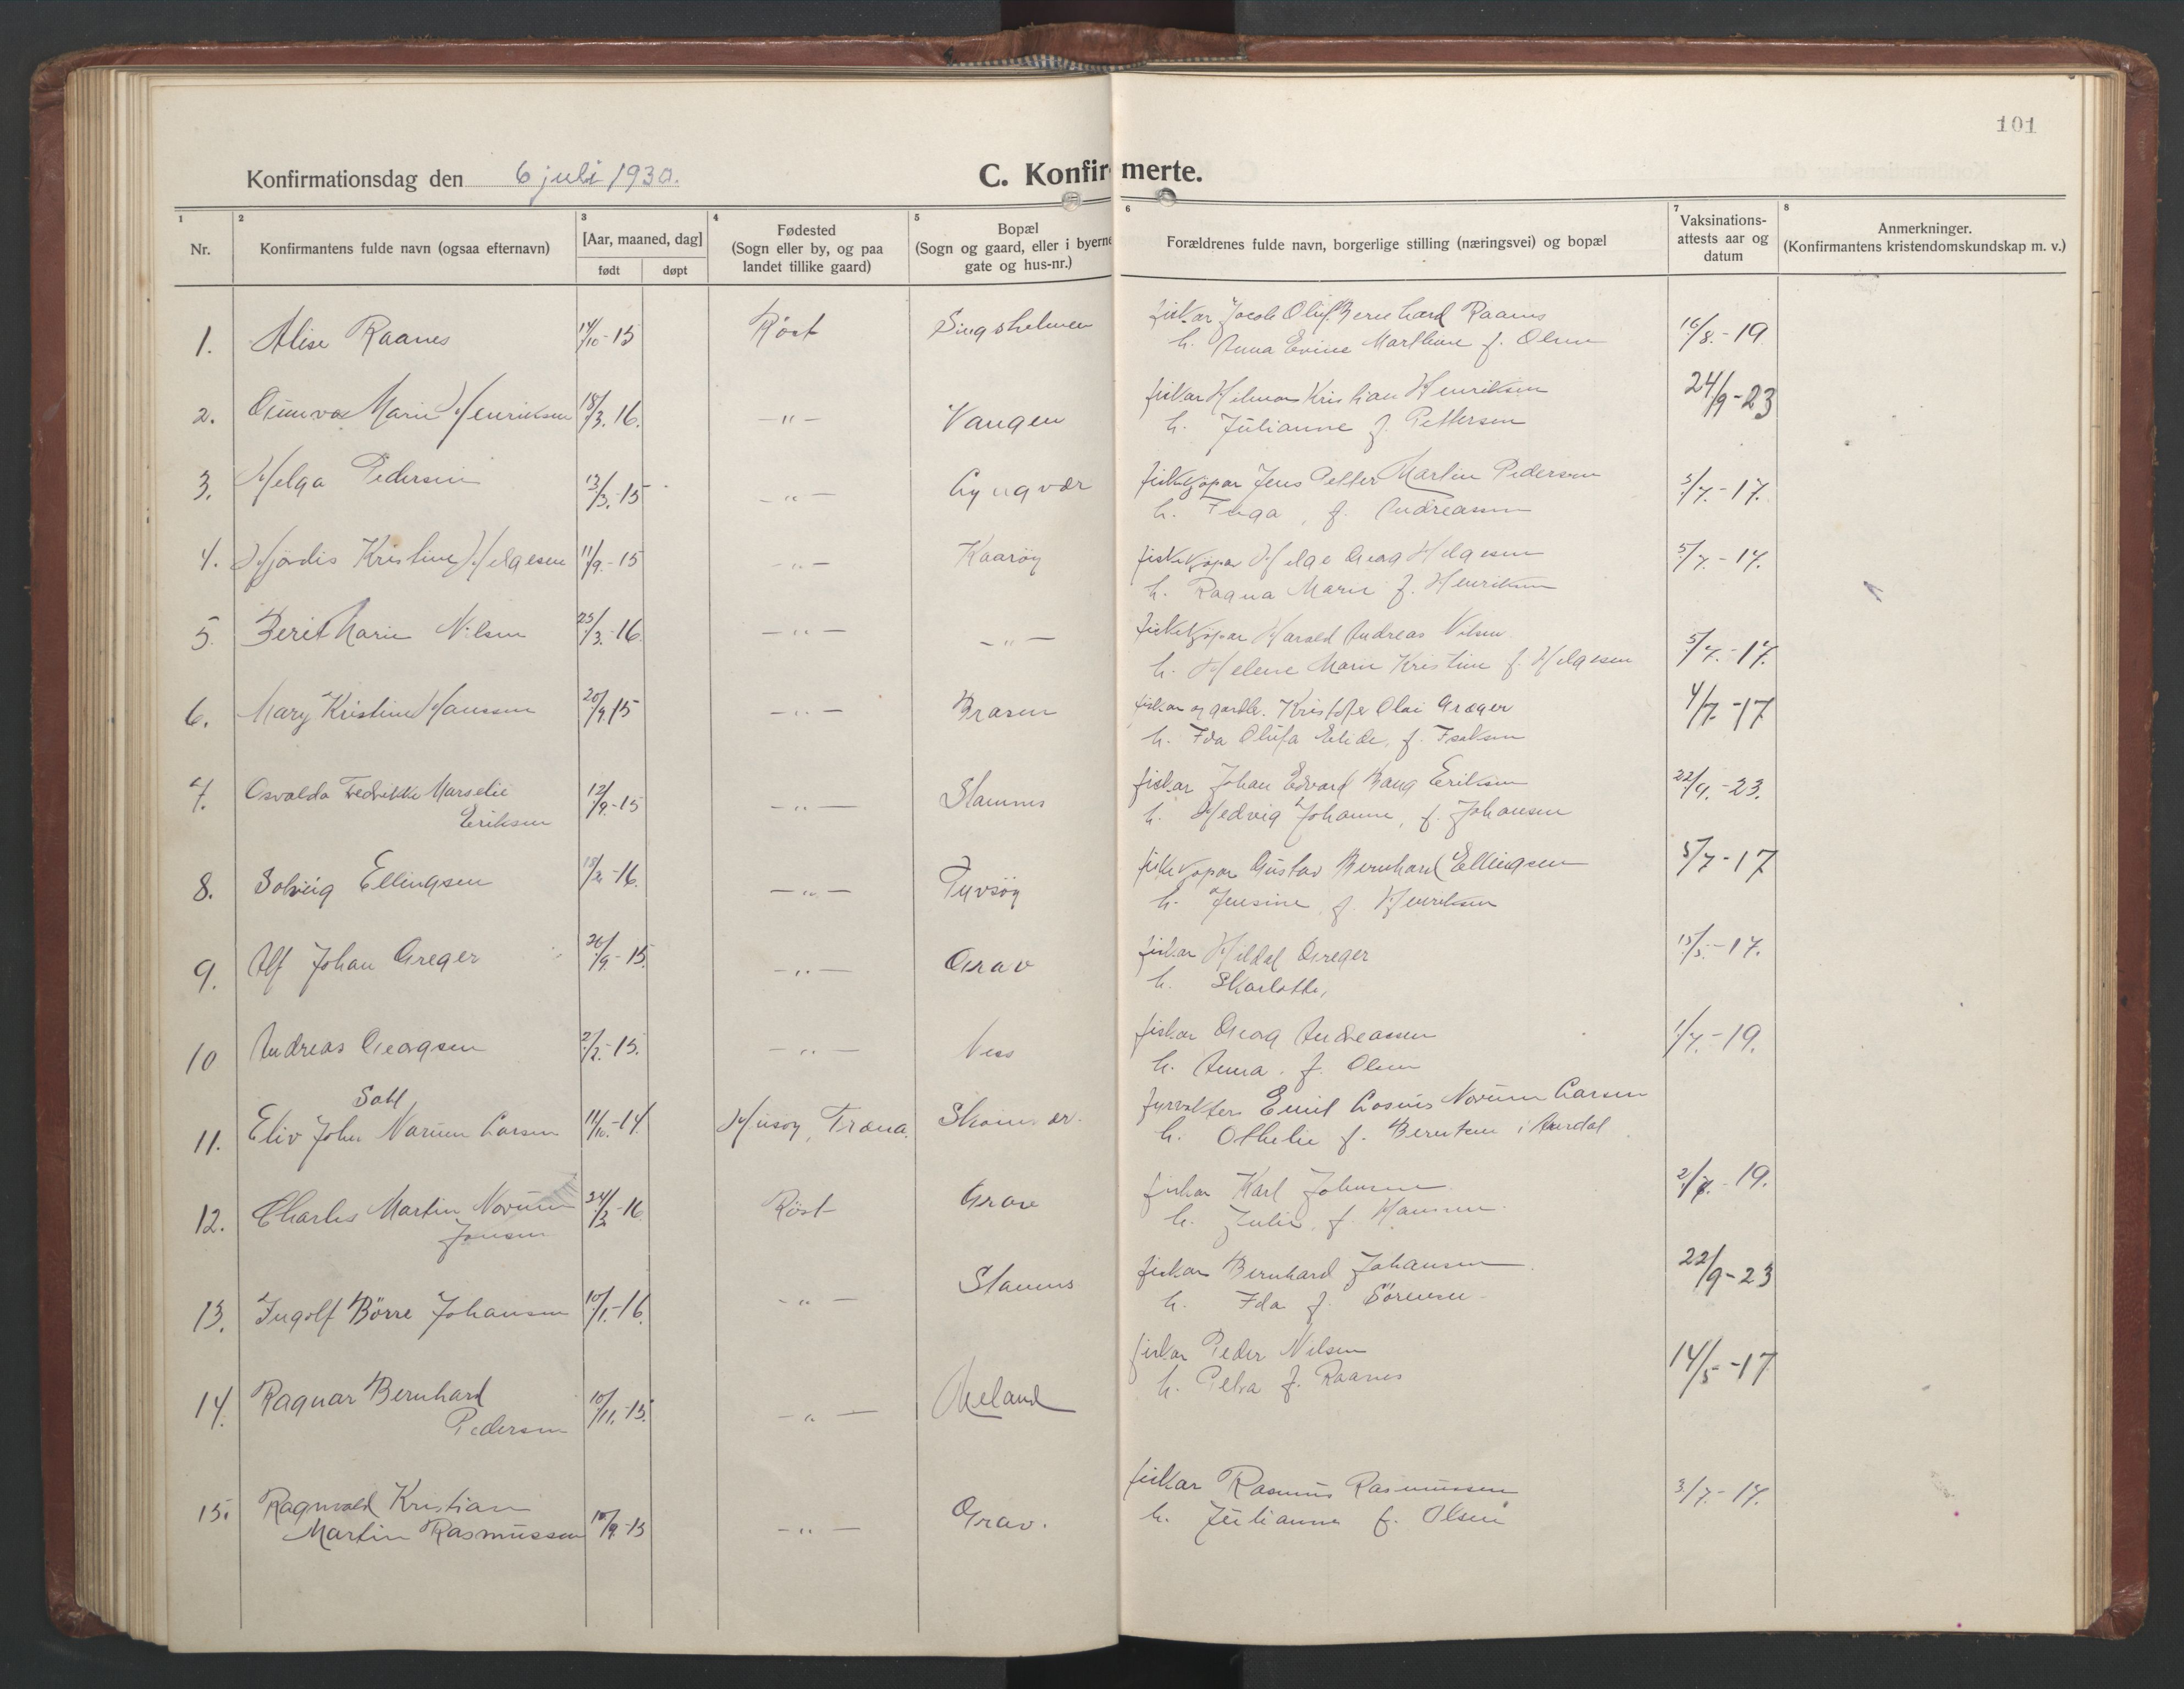 101
Konfirmationsdag den 6 juli 1930.
C. Konfirmerte.
1 2 3 4 5 6 7 8
Nr.
Konfirmantens fulde navn (ogsaa efternavn)
[Aar, maaned, dag]
født døpt
Fødested
(Sogn eller by, og paa
landet tillike gaard)
Bopæl
(Sogn og gaard, eller i byerne
gate og hus-nr.)
Forældrenes fulde navn, borgerlige stilling (næringsvei) og bopæl
Vaksinations-
attests aar og
datum
Anmerkninger.
(Konfirmantens kristendomskundskap m. v.)
1. Alise Raanes 14/10-15 Röst fiskar Jacob Oluf Bernhard Raanes 16/8.-19
h. Anna Evine Marthine f. Olsen
2. Gunvor Marie Henriksen 18/3.16. -"- Vangen fiskar Helmar Kristian Henriksen 24/9-23
h. Julianne f. Pettersen
3. Helga Pedersen 13/3.-15 -"- Lyngvær fiskekjöpar Jens Petter Martin Pedersen 5/7.-17.
h. Inga, f. Andreassen
4. Hjördis Kristine Helgesen 11/9.-15 -"- Kaaröy fiskekjöpar Helge Georg Helgesen 5/7.-17.
h. Ragna Marie f. Henriksen
5. Berit Marie Nilsen 25/3.-16. -"- -"- fiskekjöpar Harald Andreas Nilsen 5/7.-17.
h. Helene Marie Kristine f. Helgesen
6. Mary Kristine Hanssen 20/9.15 -"- Brasen fiskar og gardbr. Kristofer Olai Græger 4/7.-17
h. Ida Olufa Elide, f. Isaksen
7. Osvalda Fredrikke Marselie 12/9.-15 -"- Stavnes fiskar Johan Edvard Bang Eriksen 22/9.-23.
Eriksen h. Hedvig Johanne, f. Johansen
8. Solveig Ellingsen -16. -"- Tyvsöy fiskekjöpar Gustav Bernhard Ellingsen 5/7-17
h. Jensine, f. Henriksen
9. Alf Johan Greger 26/9.-15. -"- Grav fiskar Hildal Greger 15/5.-17.
h. Skarlotte,
10 Andreas Georgsen 2/2.-15. -"- Ness fiskar Georg Andreassen 1/7.-19.
h. Anna. f. Olsen
11. Eliv John Narum Larsen 11/10.-14. Husöy, Træna. fyrvakter Emil Narum Larsen
h. Othelie f. Berntsen i
12. Charles Martin Norum 24/3-16 Röst Grav fiskar Karl Johnsen 2/7.-19.
Jonsen h. Julie, f. Hansen.
13. Ingolf Börre Johansen 10/1.-16. -"- Stavnes fiskar Bernhard Johansen. 22/9-23
h. Ida f. Sörensen
14. Ragnar Bernhard 10/11.-15. -"- fiskar Peder Nilsen 14/5-17
Pedersen h. Petra f. Raanes
15. Ragnvald Kristian
Martin Rasmussen -"- Grav. fiskar Rasmus Rasmussen 3/7.-17.
h. Julianna f. Olsen